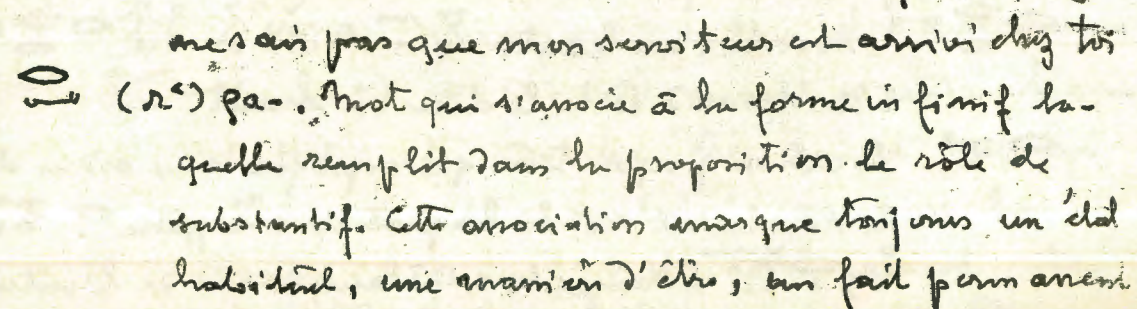 ne sais pas que mon serviteur est arrivé chez toi
𓂋𓂝 (rᶜ) ρa-. Mot qui s'associe à la forme infinif la-
quelle remplit dans la proposition le rôle de
substantif. Cette association marque toujours un état
habituel, une manière d'être, un fait permanent